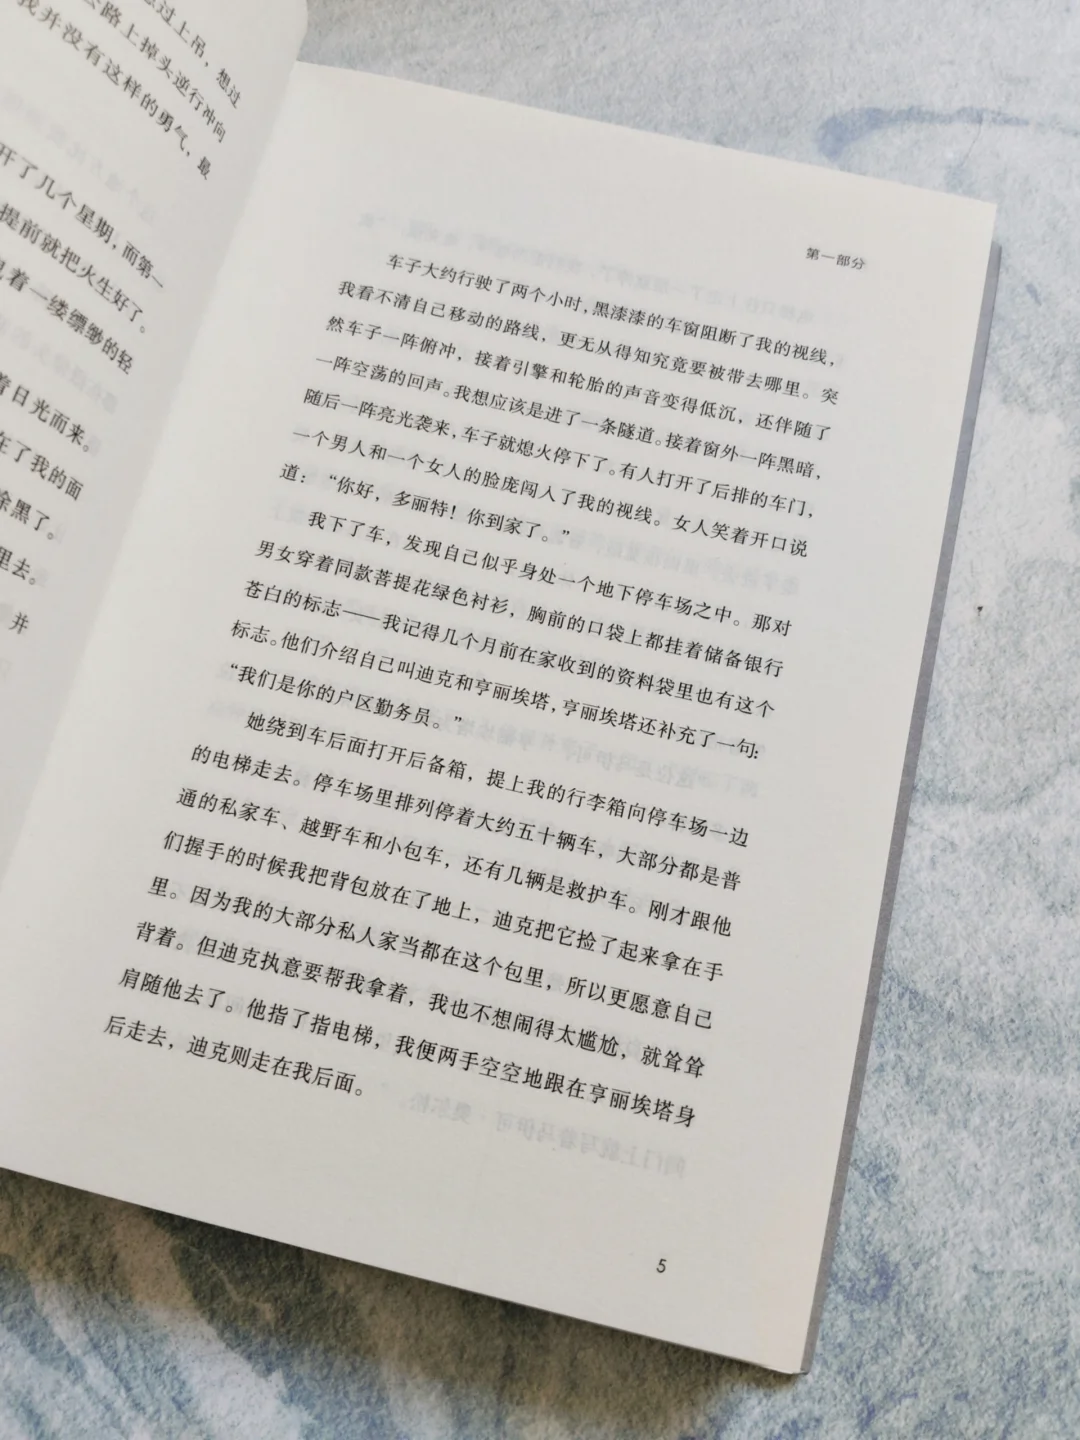 想过上吊，想过
路上掉头逆行冲向
我并没有这样的勇气，最
开了几个星期，而第一
提前就把火生好了。
着一缕缥缈的轻
着日光而来。
在了我的面
涂黑了。
里去。
并
第一部分
车子大约行驶了两个小时，黑漆漆的车窗阻断了我的视线，
我看不清自己移动的路线，更无从得知究竟要被带去哪里。突
然车子一阵俯冲，接着引擎和轮胎的声音变得低沉，还伴随了
一阵空荡的回声。我想应该是进了一条隧道。接着窗外一阵黑暗，
随后一阵亮光袭来，车子就熄火停下了。有人打开了后排的车门，
一个男人和一个女人的脸庞闯入了我的视线。女人笑着开口说
道：“你好，多丽特！你到家了。”
我下了车，发现自己似乎身处一个地下停车场之中。那对
男女穿着同款菩提花绿色衬衫，胸前的口袋上都挂着储备银行
苍白的标志——我记得几个月前在家收到的资料袋里也有这个
标志。他们介绍自己叫迪克和亨丽埃塔，亨丽埃塔还补充了一句：
“我们是你的户区勤务员。”
她绕到车后面打开后备箱，提上我的行李箱向停车场一边
的电梯走去。停车场里排列停着大约五十辆车，大部分都是普
通的私家车、越野车和小包车，还有几辆是救护车。刚才跟他
们握手的时候我把背包放在了地上，迪克把它捡了起来拿在手
里。因为我的大部分私人家当都在这个包里，所以更愿意自己
背着。但迪克执意要帮我拿着，我也不想闹得太尴尬，就耸耸
肩随他去了。他指了指电梯，我便两手空空地跟在亨丽埃塔身
后走去，迪克则走在我后面。
5